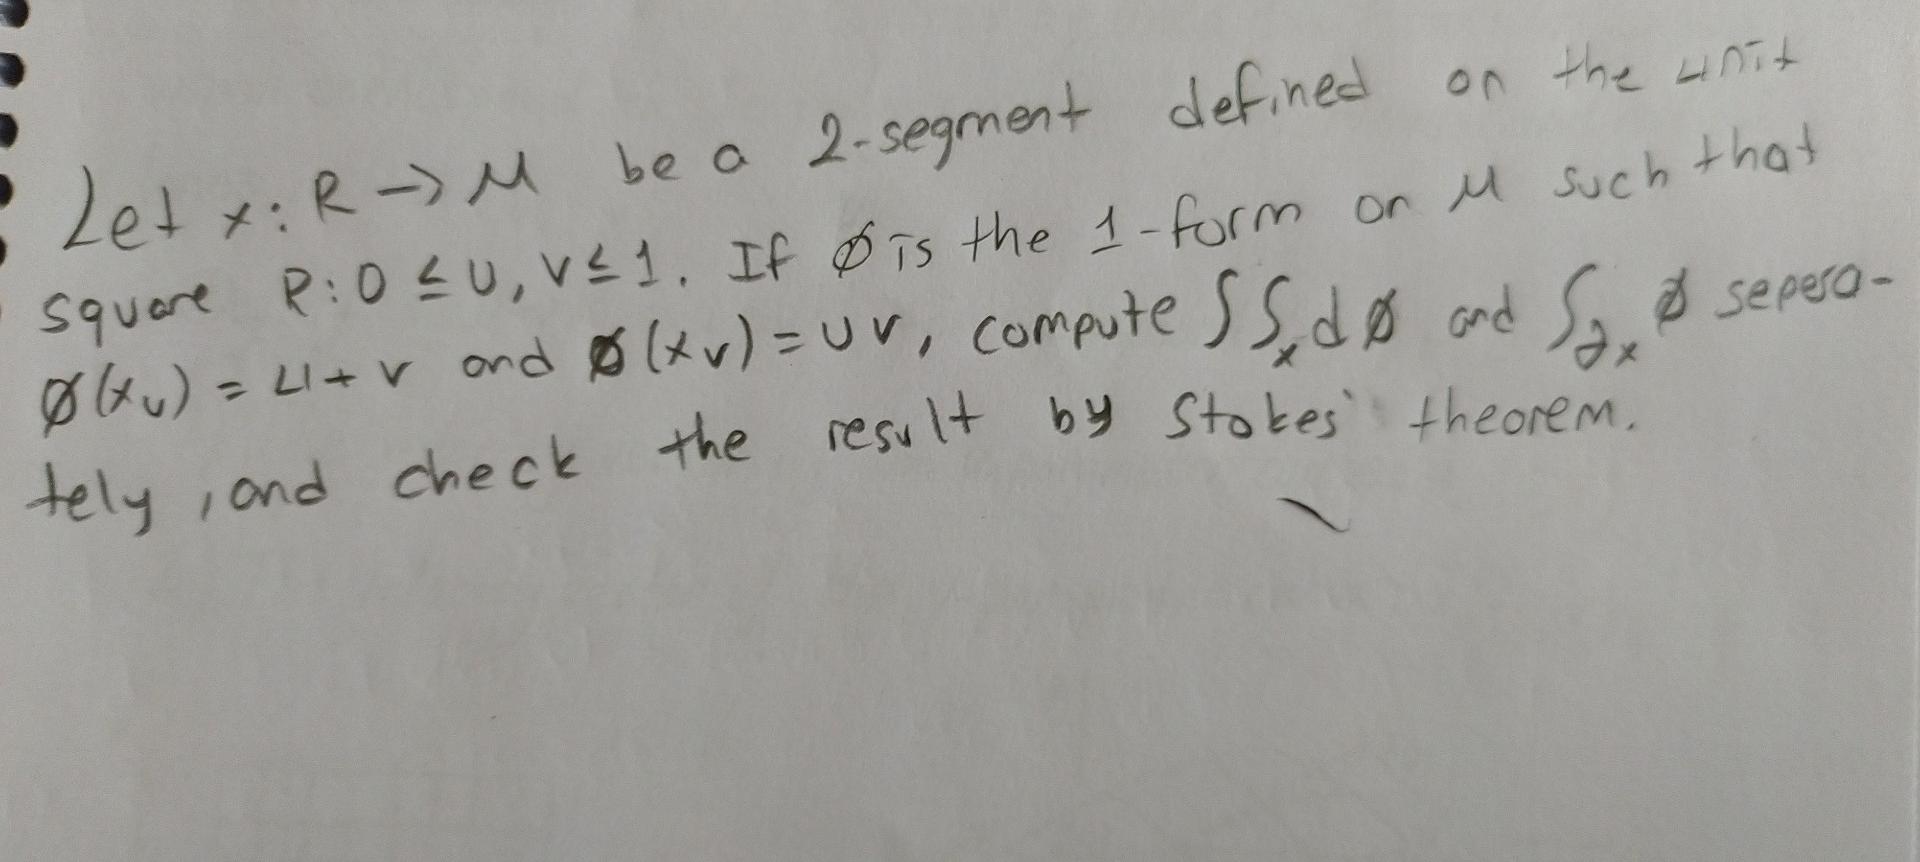 Let x: R → M be a 2-segment defined on the unit
square R: 0 ≤ u, v ≤ 1. If ø is the 1-form on M such that
ø(x_u) = u + v and ø(x_v) = uv, compute ∫∫_x dø and ∫_∂x ø sepera-
tely, and check the result by Stokes' theorem.